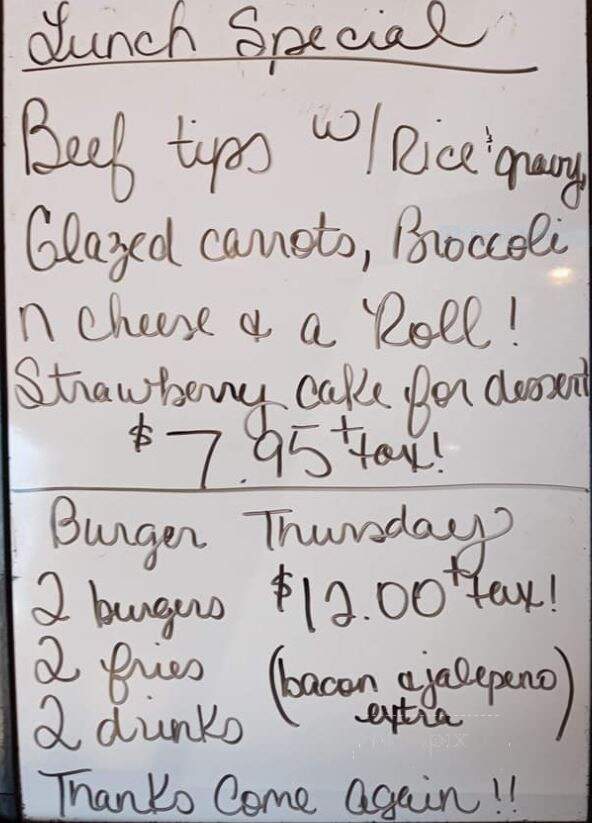 Lunch Special
Beef tips w/ Rice & gravy,
Glazed carrots, Broccoli
n cheese & a Roll!
Strawberry cake for dessert
$7.95 + tax!
Burger Thursday
2 burgers $12.00 + tax!
2 fries (bacon & jalepeno
2 drinks extra)
Thanks Come Again!!